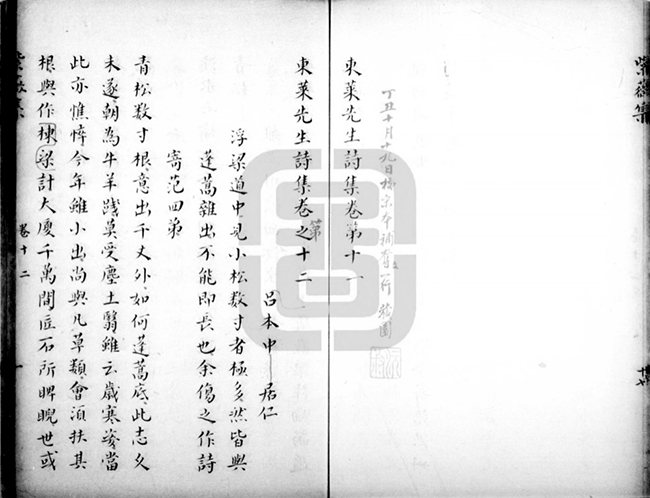 紫薇集
東萊先生詩集卷第十一
丁丑十月十九日據宋本補有一行
東萊先生詩集卷之十二
第
呂本中 居仁
浮梁道中見小松数寸者極多然皆與
蓬蒿雜出不能即長也余傷之作詩
寄范四弟
青松数寸根意出千丈外如何蓬蒿底此志久
未遂朝為牛羊踐莫受塵土翳雖云歲寒姿當
此亦憔悴今年雖小出尚與凡草類會須扶其
根與作棟梁計大廈千萬間匠石所睥睨世或
卷十二